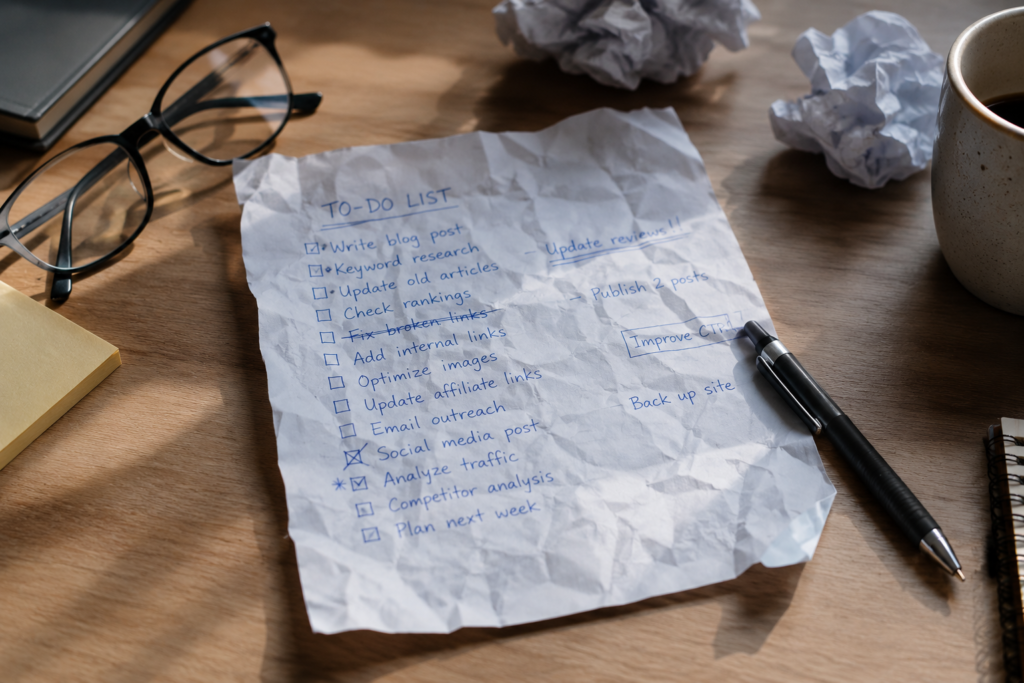 TO-DO LIST
Write blog post
Keyword research
Update old articles
Check rankings
Fix broken links
Add internal links
Optimize images
Update affiliate links
Email outreach
Social media post
Analyze traffic
Competitor analysis
Plan next week
Update reviews!!
Publish 2 posts
Improve
Back up site